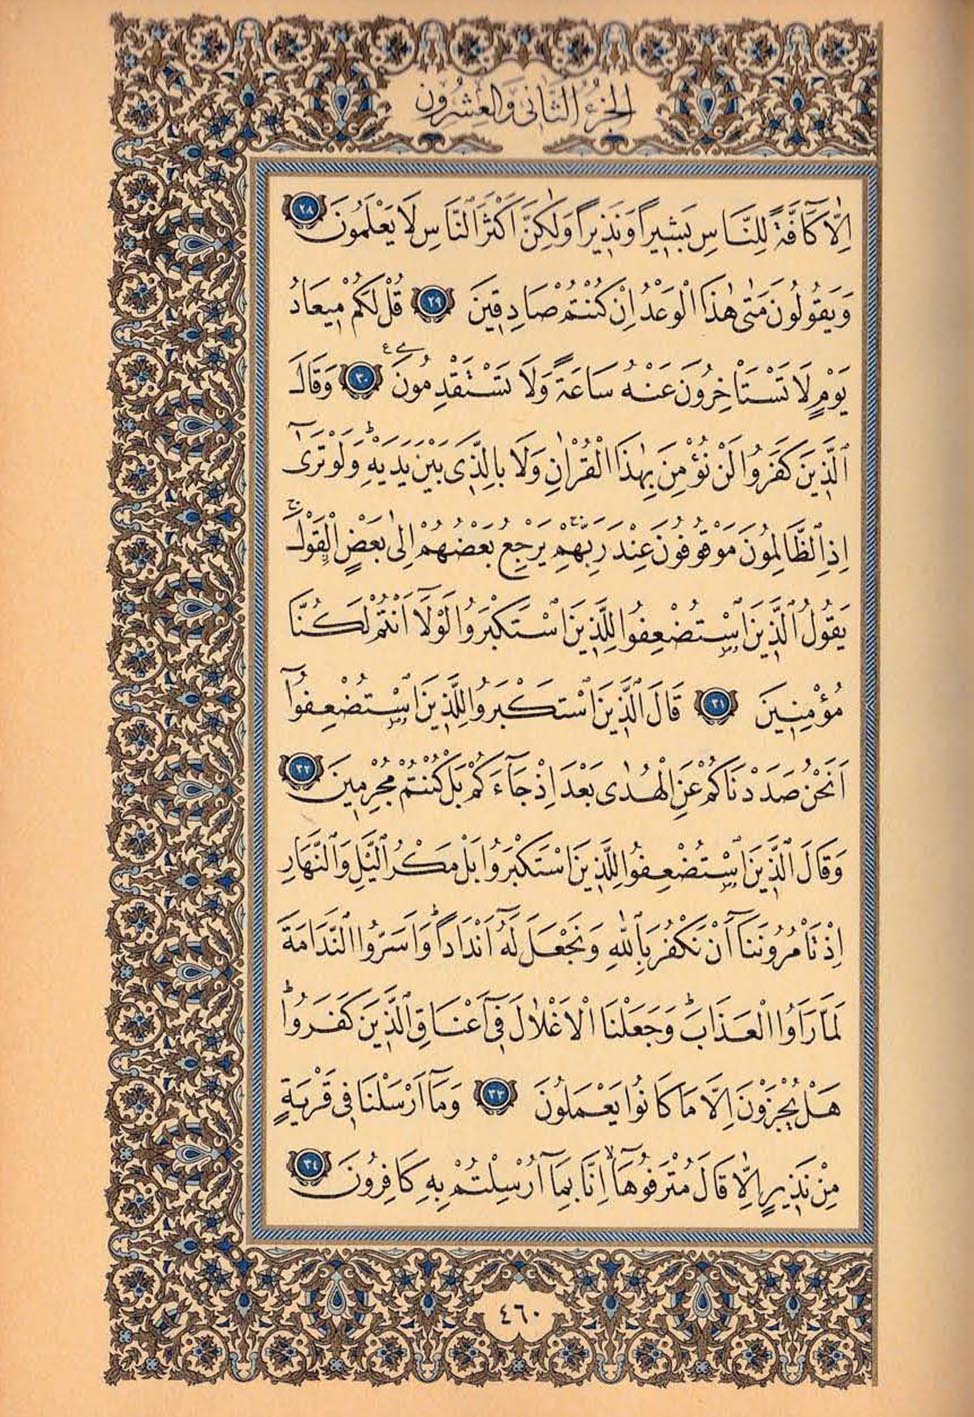 الجزء الثاني والعشرون
اِلَّا كَٓافَّةً لِلنَّاسِ بَشٖيراً وَنَذٖيراً وَلٰكِنَّ اَكْثَرَ النَّاسِ لَا يَعْلَمُونَ ٢٨
وَيَقُولُونَ مَتٰى هٰذَا الْوَعْدُ اِنْ كُنْتُمْ صَادِقٖينَ ٢٩ قُلْ لَكُمْ مٖيعَادُ
يَوْمٍ لَا تَسْتَأْخِرُونَ عَنْهُ سَاعَةً وَلَا تَسْتَقْدِمُونَ ٣٠ وَقَالَ
الَّذٖينَ كَفَرُوا لَنْ نُؤْمِنَ بِهٰذَا الْقُرْاٰنِ وَلَا بِالَّذٖى بَيْنَ يَدَيْهِؕ وَلَوْ تَرٰٓى
اِذِ الظَّالِمُونَ مَوْقُوفُونَ عِنْدَ رَبِّهِمْۚ يَرْجِعُ بَعْضُهُمْ اِلٰى بَعْضٍ الْقَوْلَۚ
يَقُولُ الَّذٖينَ اسْتُضْعِفُوا لِلَّذٖينَ اسْتَكْبَرُوا لَوْلَٓا اَنْتُمْ لَكُنَّا
مُؤْمِنٖينَ ٣١ قَالَ الَّذٖينَ اسْتَكْبَرُوا لِلَّذٖينَ اسْتُضْعِفُٓوا
اَنَحْنُ صَدَدْنَاكُمْ عَنِ الْهُدٰى بَعْدَ اِذْ جَٓاءَكُمْ بَلْ كُنْتُمْ مُجْرِمٖينَ ٣٢
وَقَالَ الَّذٖينَ اسْتُضْعِفُوا لِلَّذٖينَ اسْتَكْبَرُوا بَلْ مَكْرُ الَّيْلِ وَالنَّهَارِ
اِذْ تَأْمُرُونَنَٓا اَنْ نَكْفُرَ بِاللّٰهِ وَنَجْعَلَ لَهُٓ اَنْدَاداًؕ وَاَسَرُّوا النَّدَامَةَ
لَمَّا رَاَوُا الْعَذَابَؕ وَجَعَلْنَا الْاَغْلَالَ فٖٓى اَعْنَاقِ الَّذٖينَ كَفَرُواؕ
هَلْ يُجْزَوْنَ اِلَّا مَا كَانُوا يَعْمَلُونَ ٣٣ وَمَٓا اَرْسَلْنَا فٖى قَرْيَةٍ
مِنْ نَذٖيرٍ اِلَّا قَالَ مُتْرَفُوهَٓاۙ اِنَّا بِمَٓا اُرْسِلْتُمْ بِهٖ كَافِرُونَ ٣٤
٤٦٠